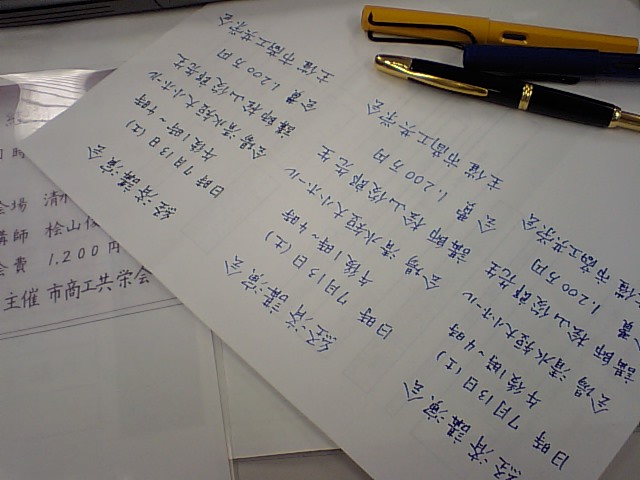 経済講演会
日時 7月13日(土)
午後1時~4時
会場 清水短大ホール
講師 桧山俊郎先生
会費 1.200万円
主催 市商工共栄会
経済講演会
日時 7月13日(土)
午後1時~4時
会場 清水短大ホール
講師 桧山俊郎先生
会費 1.200万円
主催 市商工共栄会
経済講演会
日時 7月13日(土)
午後1時~4時
会場 清水短大ホール
講師 桧山俊郎先生
会費 1.200万円
主催 市商工共栄会
会場 清
講師 桧山
会費 1.200円
主催 市商工共栄会